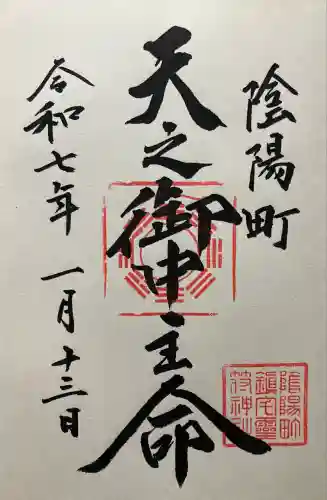 陰陽町
天之御中主命
令和七年 一月十三日
陰陽町
鎮宅霊
符神社